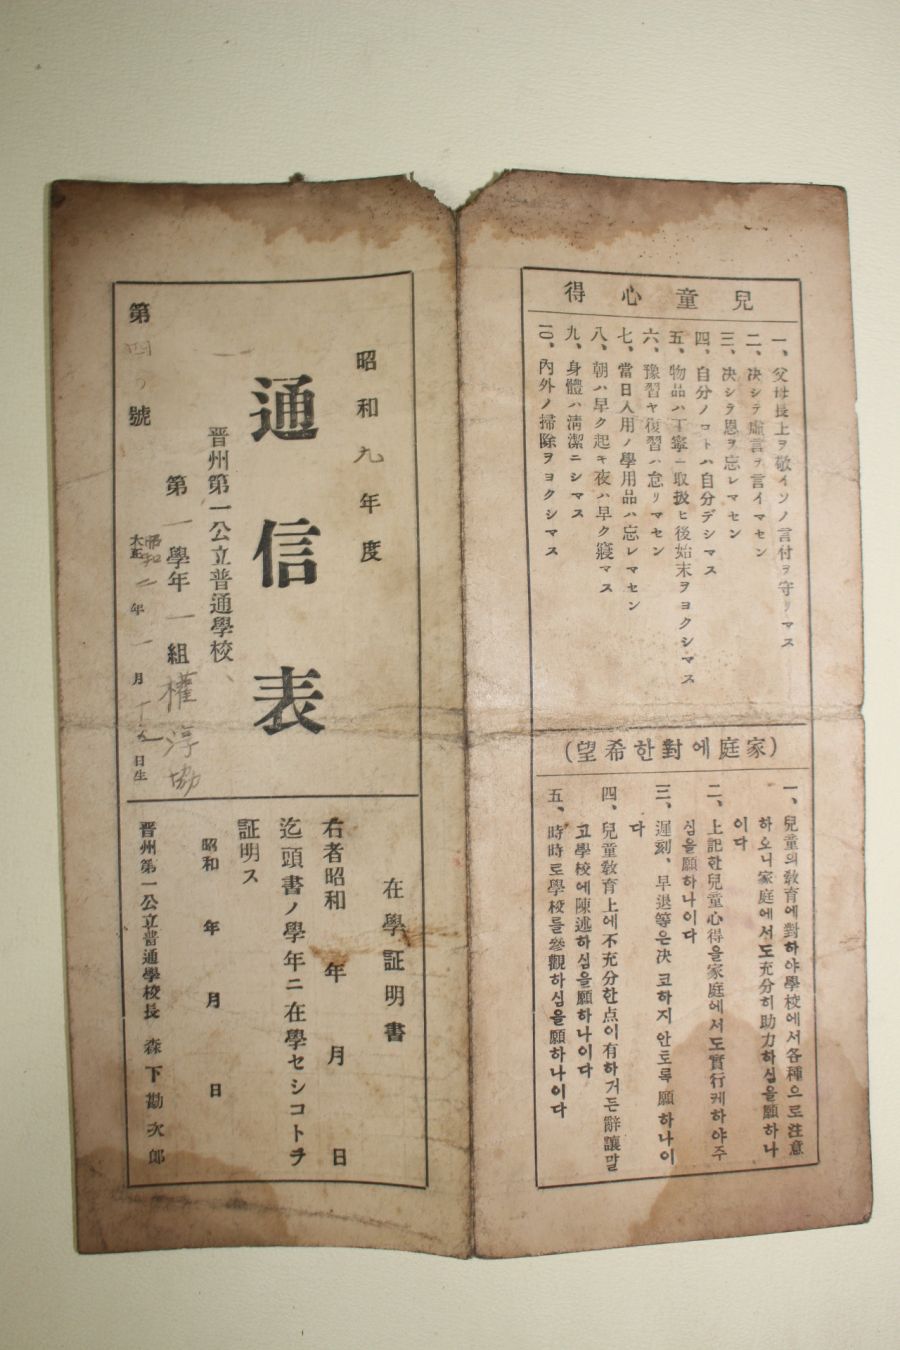 兒童心得
一、父母長上ヲ敬イソノ言付ヲ守リマス
二、決シテ虛言ヲ言イマセン
三、決シテ恩ヲ忘レマセン
四、自分ノコトハ自分デシマス
五、物品ハ丁寧ニ取扱ヒ後始末ヲヨクシマス
六、豫習ヤ復習ハ怠リマセン
七、當日入用ノ學用品ハ忘レマセン
八、朝ハ早ク起キ夜ハ早ク寢マス
九、身體ハ淸潔ニシマス
一〇、內外ノ掃除ヲヨクシマス
(家庭에對한希望)
一、兒童의敎育에對하야學校에서各種으로注意
하오니家庭에서도充分히助力하심을願하나
이다
二、上記한兒童心得을家庭에서도實行케하야주
심을願하나이다
三、遲刻、早退等은決코하지안토록願하나이
다
四、兒童敎育上에不充分한点이有하거든辭讓말
고學校에陳述하심을願하나이다
五、時時로學校를參觀하심을願하나이다
昭和九年度
通信表
晋州第一公立普通學校
第一學年一組 權淳
昭和
大正 二年一月 日生
第四 號
在學証明書
右者昭和 年 月 日
迄頭書ノ學年ニ在學セシコトヲ
証明ス
昭和 年 月 日
晋州第一公立普通學校長 森下勘次郎